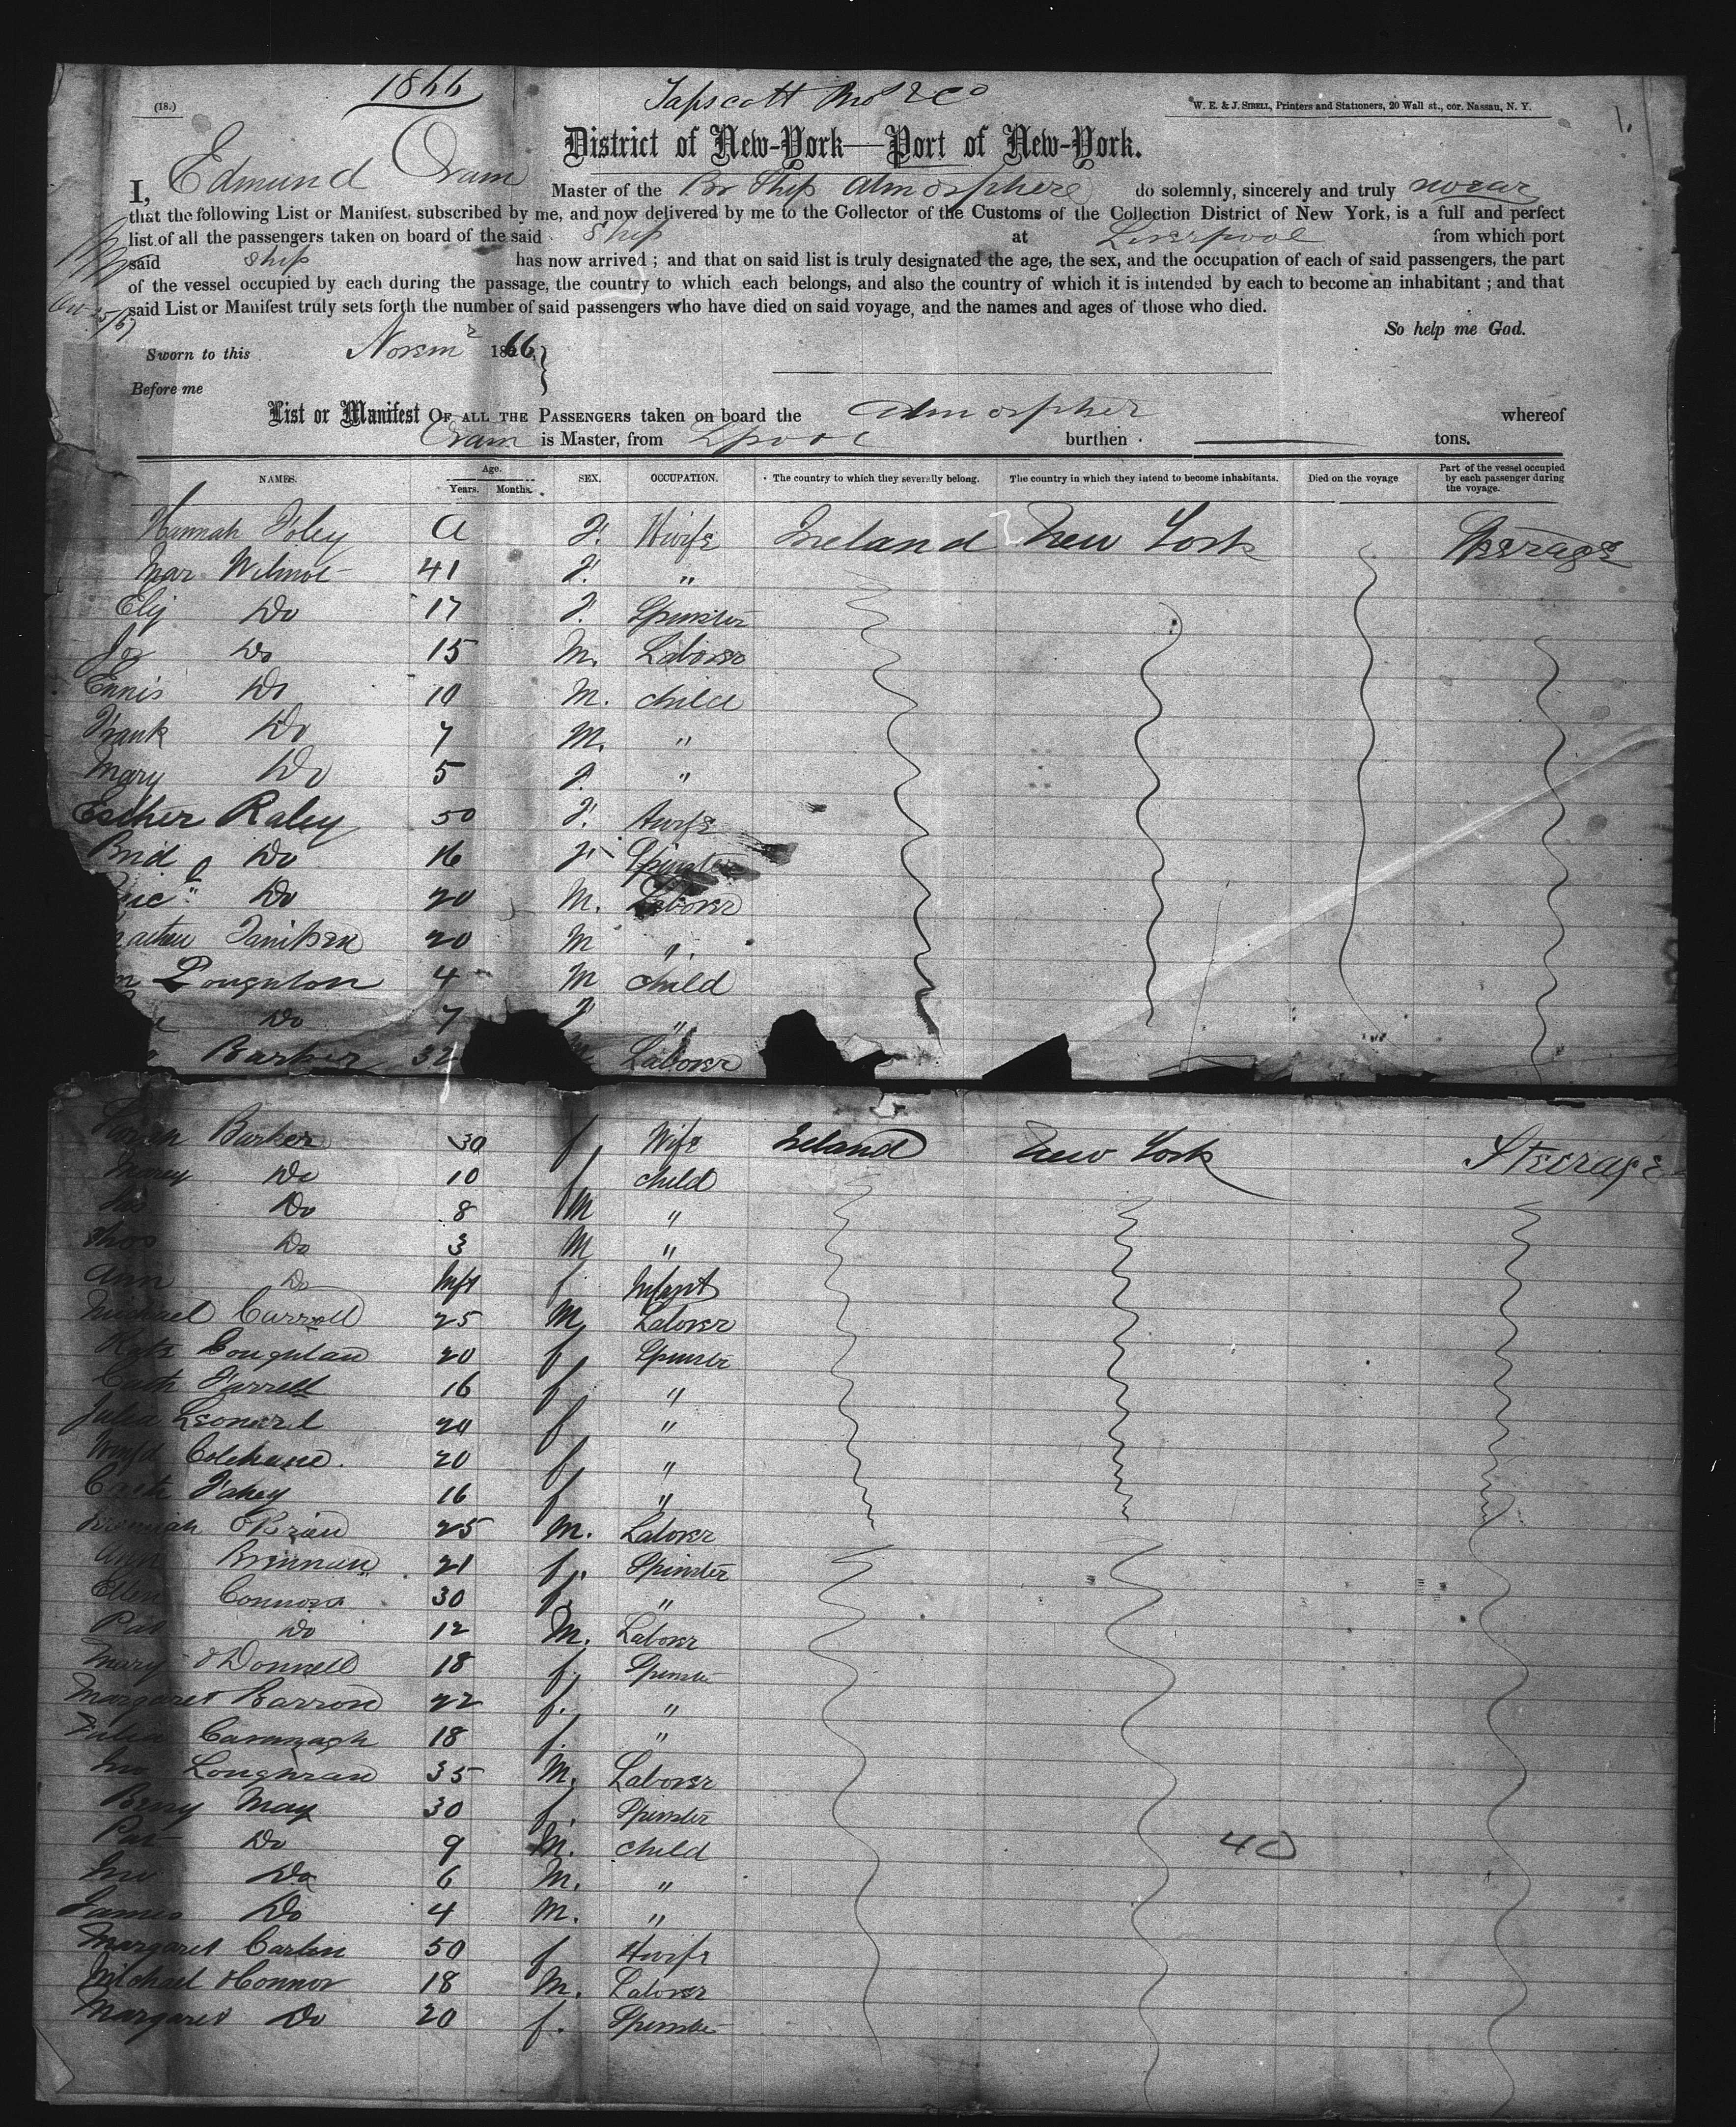 1866
Tapscott Bro & Co
(18.)
W. E. & J. Sibell, Printers and Stationers, 20 Wall st., cor. Nassau, N. Y.
1.
District of New-York—Port of New-York.
I, Edmund Oram Master of the Br Ship Atmosphere do solemnly, sincerely and truly swear
that the following List or Manifest, subscribed by me, and now delivered by me to the Collector of the Customs of the Collection District of New York, is a full and perfect
list of all the passengers taken on board of the said Ship at Liverpool from which port
said Ship has now arrived ; and that on said list is truly designated the age, the sex, and the occupation of each of said passengers, the part
of the vessel occupied by each during the passage, the country to which each belongs, and also the country of which it is intended by each to become an inhabitant ; and that
said List or Manifest truly sets forth the number of said passengers who have died on said voyage, and the names and ages of those who died.
So help me God.
Sworn to this Novemr 1866
Before me
List or Manifest OF ALL THE PASSENGERS taken on board the Atmospher whereof
Oram is Master, from Lpool burthen tons.
NAMES. Age. Years. Months. SEX. OCCUPATION. The country to which they severally belong. The country in which they intend to become inhabitants. Died on the voyage Part of the vessel occupied by each passenger during the voyage.
Hannah Foley a F. Hwife Ireland New York Steerage
Mar Wilmot 41 F. "
Eliz Do 17 F. Spinster
Jos Do 15 M. Laborer
Ennis Do 10 M. child
Frank Do 7 M. "
Mary Do 5 F. "
Esther Raley 50 F. Hwife
Brid Do 16 F Spinster
Do 20 M. Laborer
20 M "
4 M child
Do 7 F "
Barker 32 Laborer
Barker 30 f Wife Ireland New York Steerage
Do 10 f child
Do 8 M "
Thos Do 3 M "
Ann Do Inft f Infant
Michael Carroll 25 M, Laborer
Kate Coughlan 20 f Spinster
Cath Farrell 16 f "
Julia Leonard 20 f "
Winfd 20 f "
Cath Fahey 16 f "
Jeremiah OBrien 25 M. Laborer
Ann Brennan 21 f. Spinster
Ellen Connors 30 f. "
Pat Do 12 M. Laborer
Mary ODonnell 18 f. Spinster
Margaret Barron 22 f. "
Julia Cavanagh 18 f. "
Jno Loughran 35 M. Laborer
May 30 f. Spinster
Pat Do 9 M. child 40
Jno Do 6 M. "
James Do 4 M. "
Margaret Carlin 50 f Hwife
Michael OConnor 18 M. Laborer
Margaret Do 20 f. Spinster